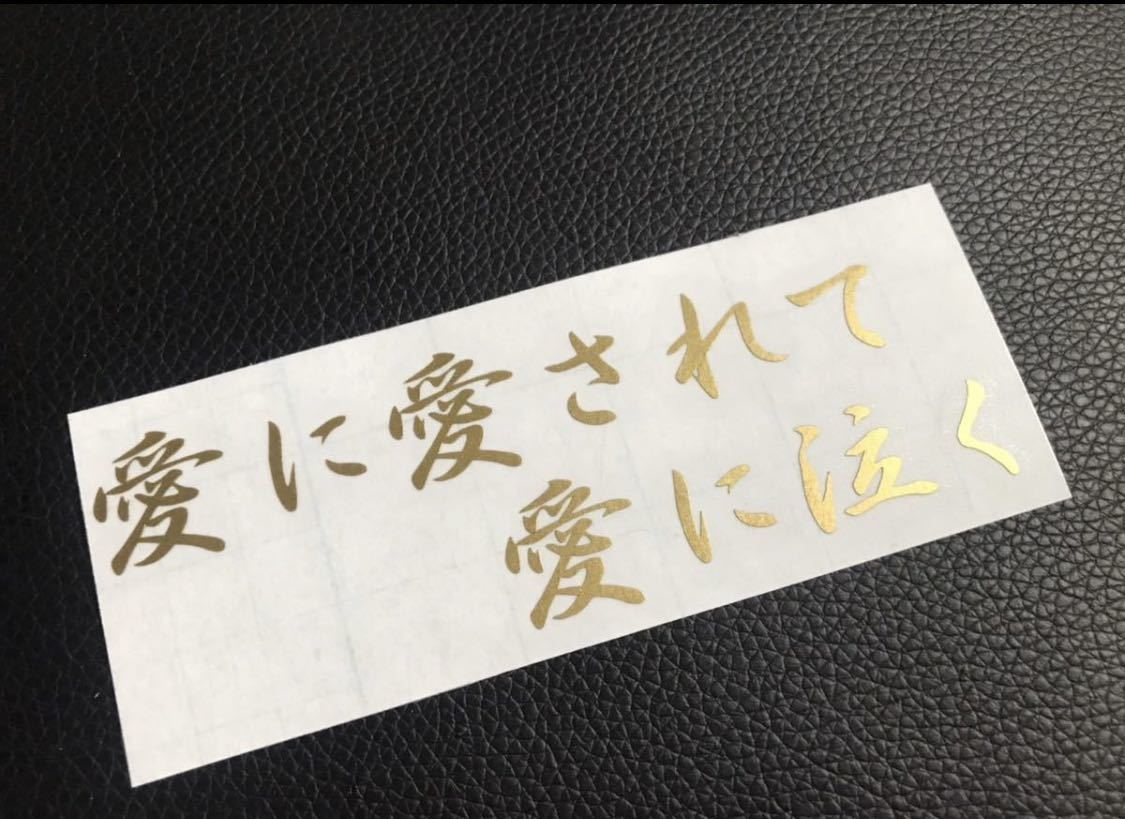 愛に愛されて
愛に泣く